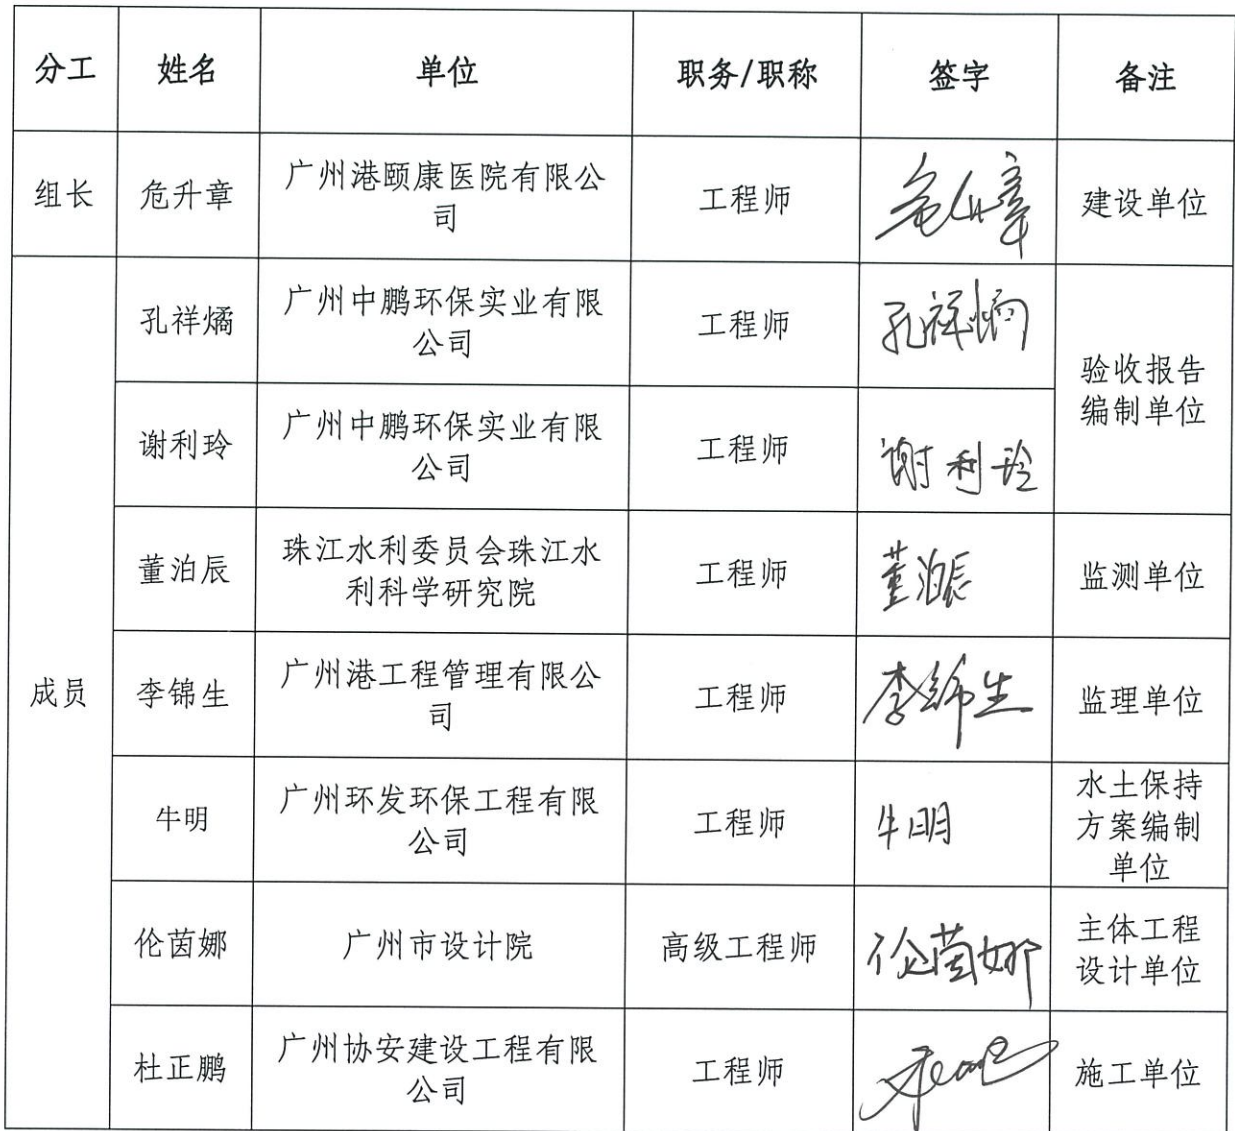 分工 姓名 单位 职务/职称 签字 备注
组长 危升章 广州港颐康医院有限公
司 工程师 危升章 建设单位
成员
孔祥燏 广州中鹏环保实业有限
公司 工程师 孔祥燏
验收报告
编制单位
谢利玲 广州中鹏环保实业有限
公司 工程师 谢利玲
董泊辰 珠江水利委员会珠江水
利科学研究院 工程师 董泊辰 监测单位
李锦生 广州港工程管理有限公
司 工程师 李锦生 监理单位
牛明 广州环发环保工程有限
公司 工程师 牛明
水土保持
方案编制
单位
伦茵娜 广州市设计院 高级工程师 伦茵娜
主体工程
设计单位
杜正鹏 广州协安建设工程有限
公司 工程师 施工单位